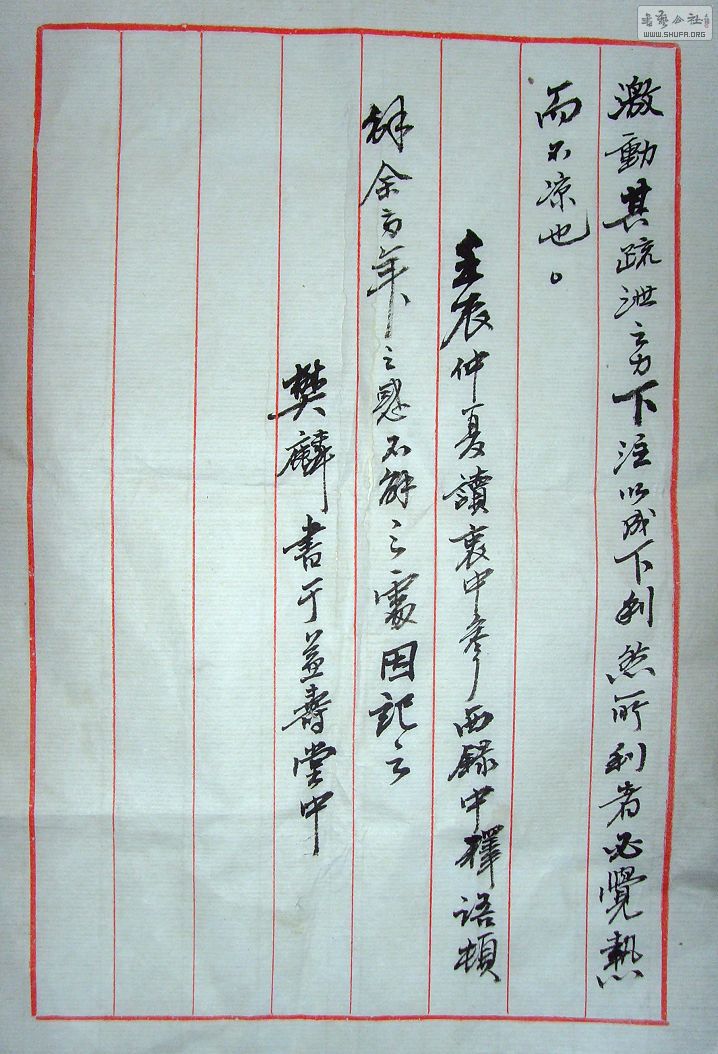 激動其疏泄之力下注以成下利然所利者必覺熱
而不凉也。
壬辰仲夏讀衷中参西録中擇语頓
解余百年之惑不解之處因記之
樊麟書于益壽堂中
書藝公社
WWW.SHUFA.ORG